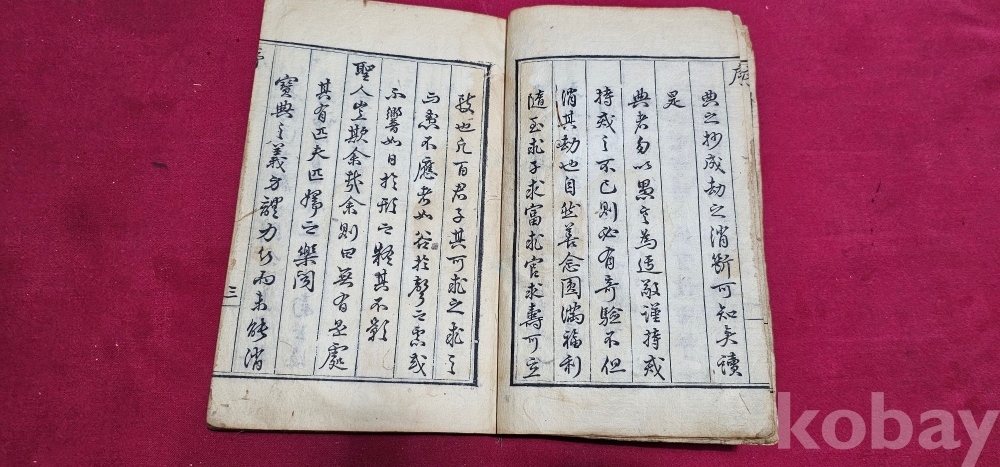 序
典之抄成劫之消斷可知矣讀
是
典者勿以愚言為迂敬謹持戒
持戒之不已則必有奇驗不但
消其劫也自然善念圓滿福利
隨至求子求富求官求壽可立
致也凡百君子其可求之求之
而患不應者如谷於聲之慮或
不響如日於形之疑其不影
聖人豈欺余哉余則曰無有是處
其有匹夫匹婦之樂閱
寶典之義方體力行而未能消
三
kobay